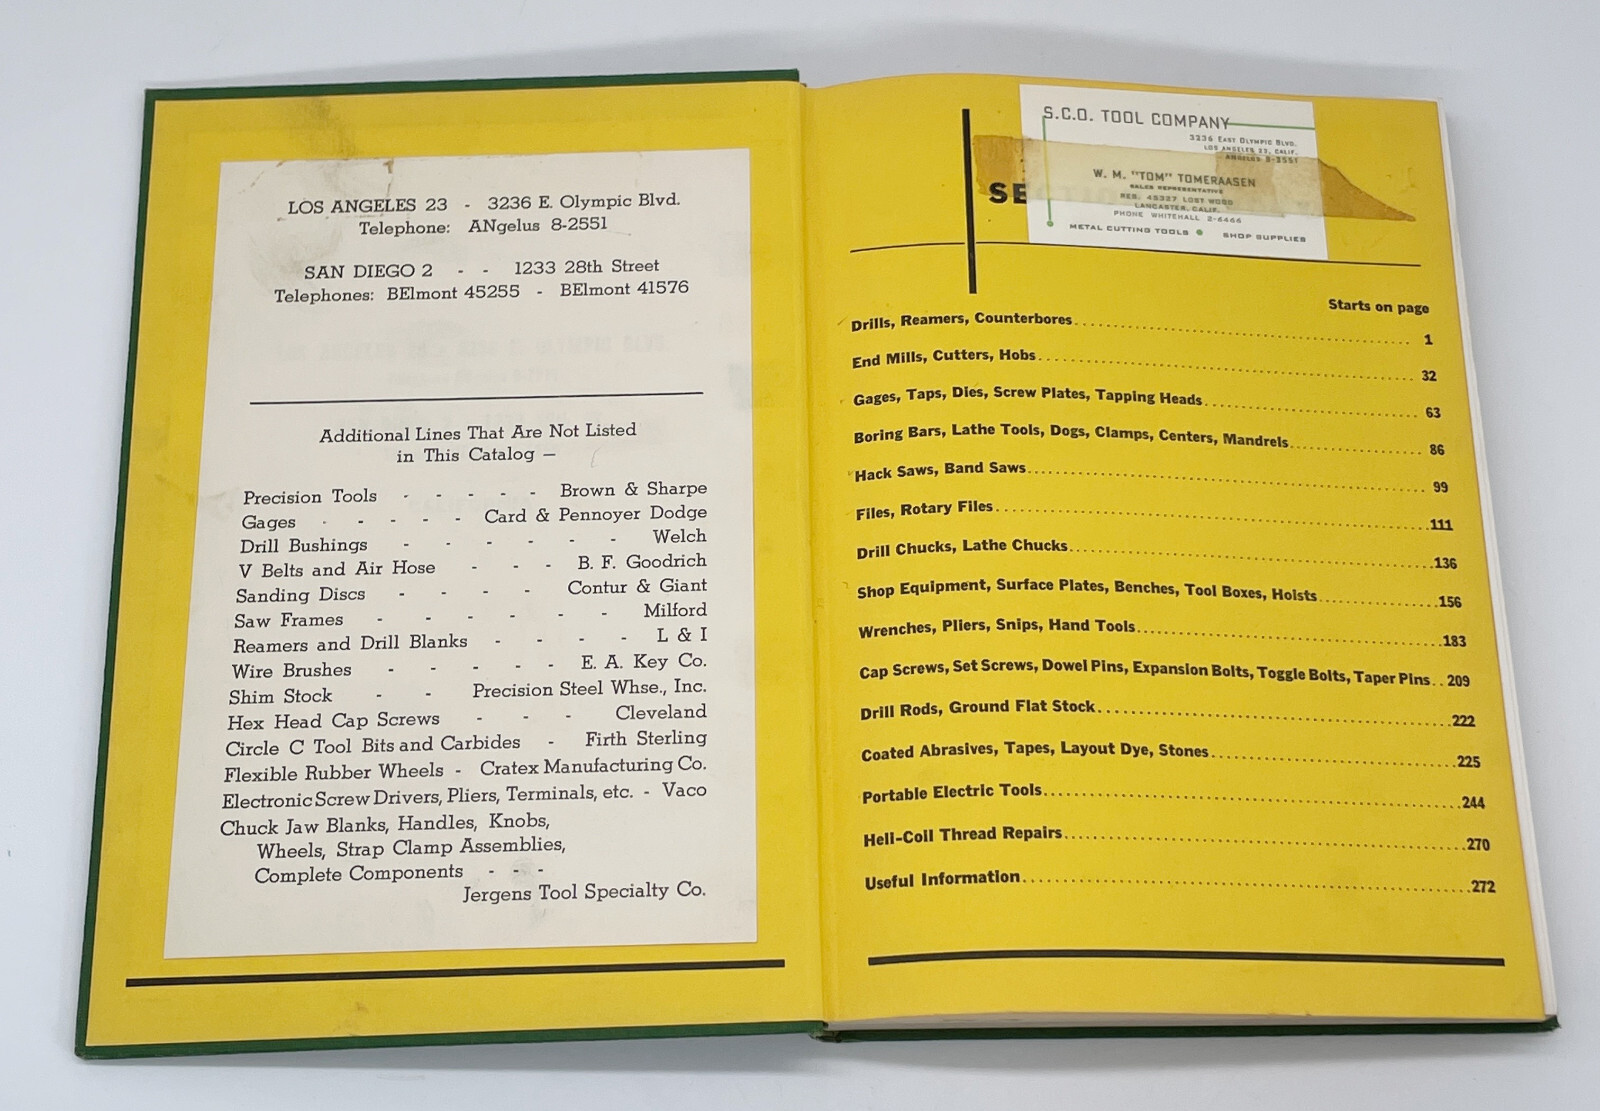 LOS ANGELES 23 - 3236 E. Olympic Blvd.
Telephone: ANgelus 8-2551
SAN DIEGO 2 - - 1233 28th Street
Telephones: BElmont 45255 - BElmont 41576
Additional Lines That Are Not Listed
in This Catalog —
Precision Tools - - - - - Brown & Sharpe
Gages - - - - - Card & Pennoyer Dodge
Drill Bushings - - - - - - Welch
V Belts and Air Hose - - - B. F. Goodrich
Sanding Discs - - - - Contur & Giant
Saw Frames - - - - - - Milford
Reamers and Drill Blanks - - - - L & I
Wire Brushes - - - - - E. A. Key Co.
Shim Stock - - Precision Steel Whse., Inc.
Hex Head Cap Screws - - - Cleveland
Circle C Tool Bits and Carbides - Firth Sterling
Flexible Rubber Wheels - Cratex Manufacturing Co.
Electronic Screw Drivers, Pliers, Terminals, etc. - Vaco
Chuck Jaw Blanks, Handles, Knobs,
Wheels, Strap Clamp Assemblies,
Complete Components - - -
Jergens Tool Specialty Co.
S.C.O. TOOL COMPANY
3236 EAST OLYMPIC BLVD.
LOS ANGELES 23, CALIF.
ANGELUS 8-2551
W. M. "TOM" TOMERAASEN
SALES REPRESENTATIVE
RES. 45327 LOST WOOD
LANCASTER, CALIF.
PHONE WHITEHALL 2-6466
METAL CUTTING TOOLS • SHOP SUPPLIES
SE
Starts on page
Drills, Reamers, Counterbores 1
End Mills, Cutters, Hobs 32
Gages, Taps, Dies, Screw Plates, Tapping Heads 63
Boring Bars, Lathe Tools, Dogs, Clamps, Centers, Mandrels 86
Hack Saws, Band Saws 99
Files, Rotary Files 111
Drill Chucks, Lathe Chucks 136
Shop Equipment, Surface Plates, Benches, Tool Boxes, Hoists 156
Wrenches, Pliers, Snips, Hand Tools 183
Cap Screws, Set Screws, Dowel Pins, Expansion Bolts, Toggle Bolts, Taper Pins 209
Drill Rods, Ground Flat Stock 222
Coated Abrasives, Tapes, Layout Dye, Stones 225
Portable Electric Tools 244
Heli-Coil Thread Repairs 270
Useful Information 272